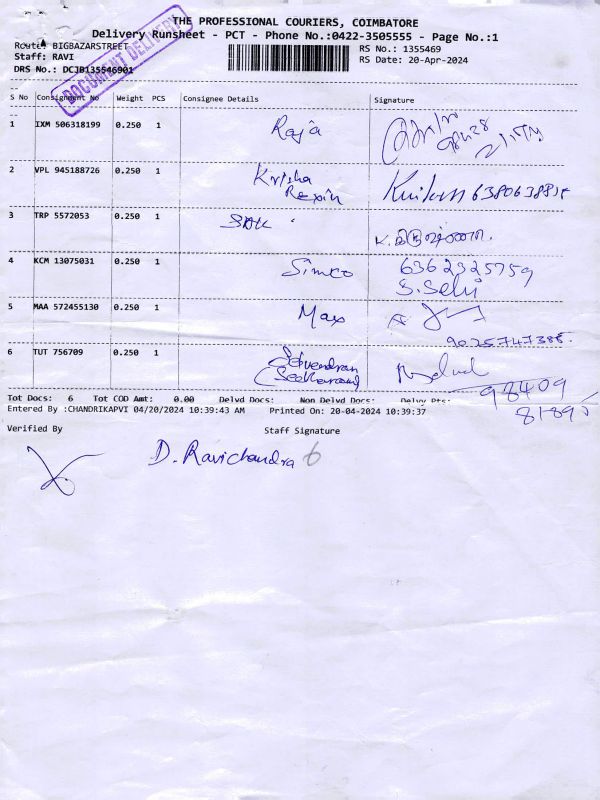 THE PROFESSIONAL COURIERS, COIMBATORE
Delivery Runsheet - PCT - Phone No.:0422-3505555 - Page No.:1
Route: BIGBAZARSTREET
RS No.: 1355469
Staff: RAVI
RS Date: 20-Apr-2024
DRS No.: DCJB135546901
DOCUMENT DELIVERY
S No Consignment No Weight PCS Consignee Details Signature
1 IXM 506318199 0.250 1 Raja
2 VPL 945188726 0.250 1 Krisha
6380638815
3 TRP 5572053 0.250 1
4 KCM 13075031 0.250 1 Simco 6362325759
S. Selvi
5 MAA 572455130 0.250 1 Max
9025747388.
6 TUT 756709 0.250 1
98409
81895
Tot Docs: 6 Tot COD Amt: 0.00 Delvd Docs: Non Delvd Docs: Delvy Pts:
Entered By :CHANDRIKAPVI 04/20/2024 10:39:43 AM Printed On: 20-04-2024 10:39:37
Verified By Staff Signature
D. Ravichandra 6